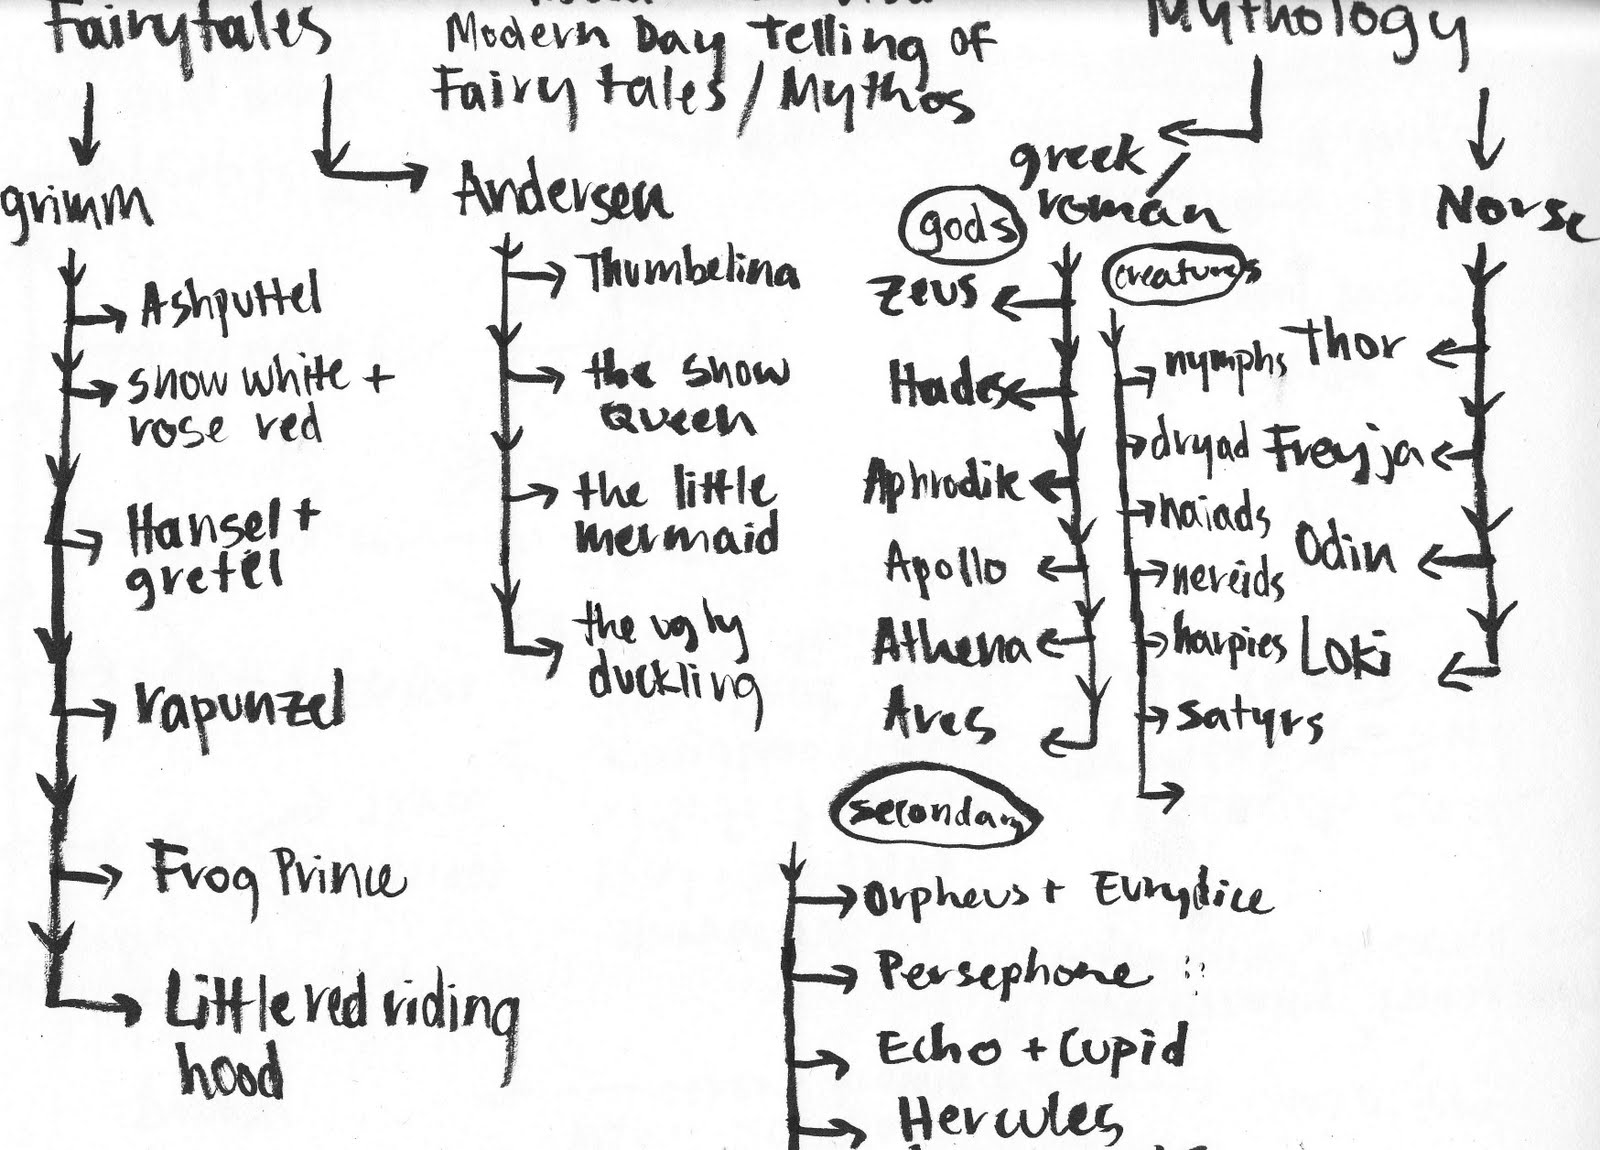 Fairytales
Modern Day Telling of
Fairy tales / Mythos
Mythology
grimm
Ashputtel
snow white +
rose red
Hansel +
gretel
rapunzel
Frog Prince
Little red riding
hood
Andersen
Thumbelina
the snow
Queen
the little
mermaid
the ugly
duckling
greek /
roman
gods
Zeus
Hades
Aphrodite
Apollo
Athena
Ares
creatures
nymphs
dryad
naiads
nereids
harpies
satyrs
secondary
Orpheus + Eurydice
Persephone
Echo + Cupid
Hercules
Norse
Thor
Freyja
Odin
Loki